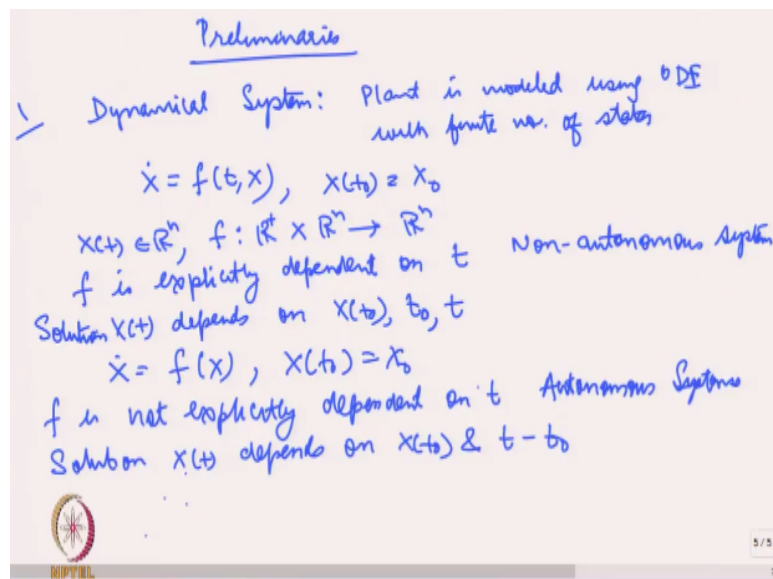 Preliminaries
1 Dynamical System: Plant is modeled using ODE
with finite no. of states
ẋ = f(t,x), x(t₀) = x₀
x(t) ∈ ℝⁿ, f : ℝ⁺ × ℝⁿ → ℝⁿ
f is explicitly dependent on t Non-autonomous system
Solution x(t) depends on x(t₀), t₀, t
ẋ = f(x), x(t₀) = x₀
f is not explicitly dependent on t Autonomous Systems
Solution x(t) depends on x(t₀) & t - t₀
5/5
NPTEL